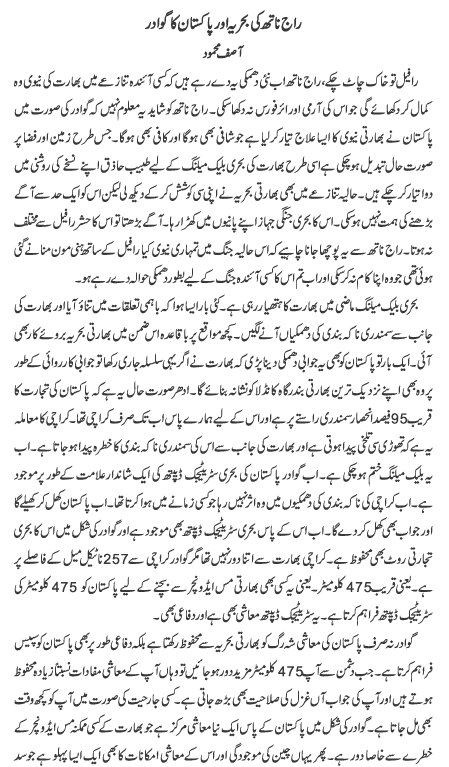 راج ناتھ کی بحریہ اور پاکستان کا گوادر
آصف محمود
رافیل تو خاک چاٹ چکے، راج ناتھ اب نئی دھمکی یہ دے رہے ہیں کہ کسی آئندہ تنازعے میں بھارت کی نیوی وہ
کمال کر دکھائے گی جو اس کی آرمی اور ائر فورس نہ دکھا سکی۔ راج ناتھ کو شاید یہ معلوم نہیں کہ گوادر کی صورت میں
پاکستان نے بھارتی نیوی کا ایسا علاج تیار کر لیا ہے جو شافی بھی ہوگا اور کافی بھی ہوگا۔ جس طرح زمین اور فضا پر
صورت حال تبدیل ہو چکی ہے اسی طرح بھارت کی بحری بلیک میلنگ کے لیے طبیب حاذق اپنے نسخے کی روشنی میں
دوا تیار کر چکے ہیں۔ حالیہ تنازعے میں بھی بھارتی بحریہ نے اپنی سی کوشش کر کے دیکھ لی لیکن اس کو ایک حد سے آگے
بڑھنے کی ہمت نہیں ہو سکی۔ اس کا بحری جنگی جہاز اپنے پانیوں میں کھڑا رہا۔ آگے بڑھتا تو اس کا حشر رافیل سے مختلف
نہ ہوتا۔ راج ناتھ سے یہ پوچھا جانا چاہیے کہ اس حالیہ جنگ میں تمہاری نیوی کیا رافیل کے ساتھ ہنی مون منانے گئی
ہوئی تھی جو وہ اپنا کام نہ کر سکی اور اب تم اس کا کسی آئندہ جنگ کے لیے بطور دھمکی حوالہ دے رہے ہو۔
بحری بلیک میلنگ ماضی میں بھارت کا ہتھیار رہی ہے۔ کئی بار ایسا ہوا کہ باہمی تعلقات میں تناؤ آیا اور بھارت کی
جانب سے سمندری ناکہ بندی کی دھمکیاں آنے لگیں۔ کچھ مواقع پر باقاعدہ اس ضمن میں بھارتی بحریہ بروئے کار بھی
آئی۔ ایک بار تو پاکستان کو بھی یہ جوابی دھمکی دینا پڑی کہ بھارت نے اگر یہی سلسلہ جاری رکھا تو جوابی کارروائی کے طور
پر وہ بھی اپنے نزدیک ترین بھارتی بندرگاہ کانڈلا کو نشانہ بنائے گا۔ ادھر صورت حال یہ ہے کہ پاکستان کی تجارت کا
قریب 95 فیصد انحصار سمندری راستے پر ہے اور اس کے لیے ہمارے پاس اب تک صرف کراچی تھا۔ کراچی کا معاملہ
یہ ہے کہ تھوڑی سی تلخی پیدا ہوتی ہے اور بھارت کی جانب سے اس کی سمندری ناکہ بندی کا خطرہ پیدا ہو جاتا ہے۔ اب
یہ بلیک میلنگ ختم ہو چکی ہے۔ اب گوادر پاکستان کی بحری سٹریٹیجک ڈیپتھ کی ایک شاندار علامت کے طور پر موجود
ہے۔ اب کراچی کی ناکہ بندی کی دھمکیوں میں وہ اثر نہیں رہا جو کسی زمانے میں ہوا کرتا تھا۔ اب پاکستان کھل کر کھیلے گا
اور جواب بھی کھل کر دے گا۔ اب اس کے پاس بحری سٹریٹیجک ڈیپتھ بھی موجود ہے اور گوادر کی شکل میں اس کا بحری
تجارتی روٹ بھی محفوظ ہے۔ کراچی بھارت سے اتنا دور نہیں تھا مگر گوادر کراچی سے 257 ناٹیکل میل کے فاصلے پر
ہے۔ یعنی قریب 475 کلومیٹر۔ یعنی یہ کسی بھی بھارتی مس ایڈونچر سے بچنے کے لیے پاکستان کو 475 کلومیٹر کی
سٹریٹیجک ڈیپتھ فراہم کرتا ہے۔ یہ سٹریٹیجک ڈیپتھ معاشی بھی ہے اور دفاعی بھی۔
گوادر نہ صرف پاکستان کی معاشی شہ رگ کو بھارتی بحریہ سے محفوظ رکھتا ہے بلکہ دفاعی طور پر بھی پاکستان کو سپیس
فراہم کرتا ہے۔ جب دشمن سے آپ 475 کلومیٹر مزید دور ہو جائیں تو وہاں آپ کے معاشی مفادات نسبتاً زیادہ محفوظ
ہوتے ہیں اور آپ کی جواب آں غزل کی صلاحیت بھی بڑھ جاتی ہے۔ کسی جارحیت کی صورت میں آپ کو کچھ وقت
بھی مل جاتا ہے۔ گوادر کی شکل میں پاکستان کے پاس ایک نیا معاشی مرکز ہے جو بھارت کے کسی ممکنہ مس ایڈونچر کے
خطرے سے خاصا دور ہے۔ پھر یہاں چین کی موجودگی اور اس کے معاشی امکانات کا بھی ایک ایسا پہلو ہے جو سد